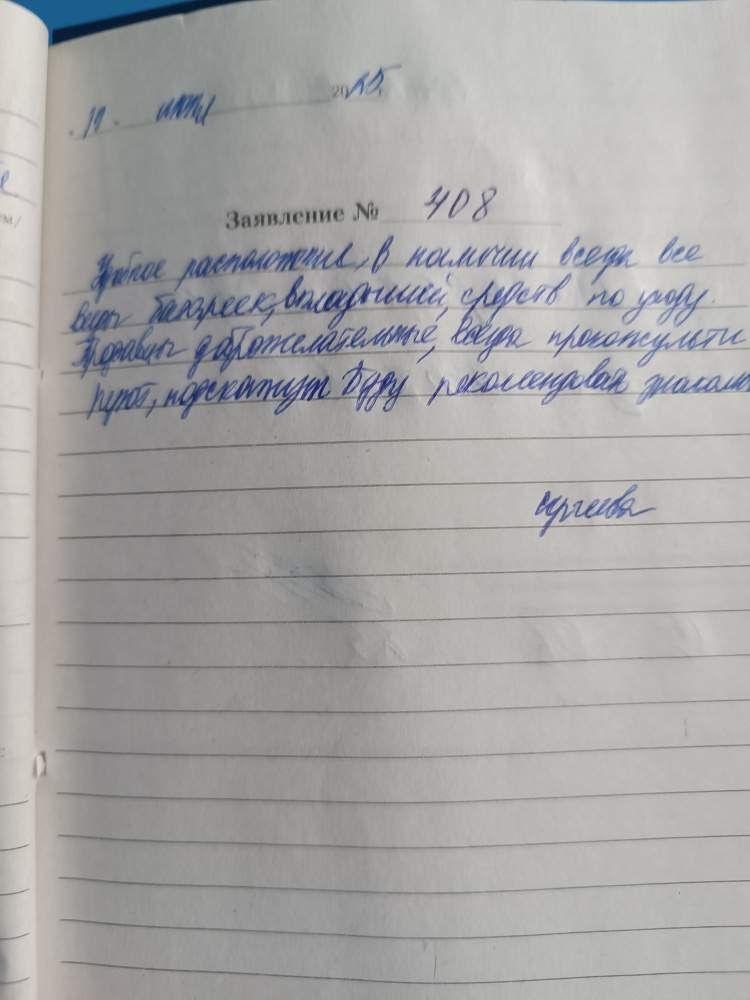 19. июля 2025
Заявление № 408
Удобное расположение, в наличии всегда все
виды батареек, вкладышей, средств по уходу.
Продавцы доброжелательные, всегда проконсульти
руют, подскажут Буду рекомендовать знаком